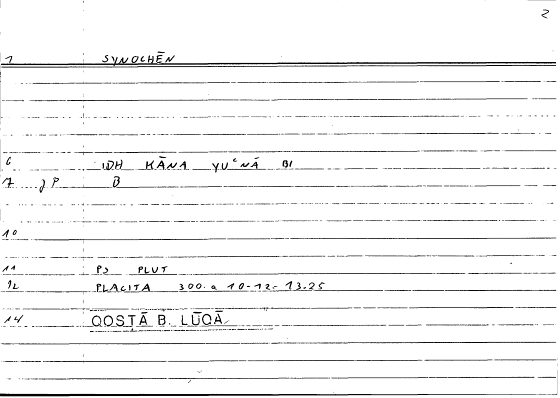 2
1 SYNOCHĒN
6 IDH KĀNA YUʿNĀ BI
7 J P B
10
11 PS PLUT
12 PLACITA 300.a 10-12-13.25
14 QOSṬĀ B. LŪQĀ